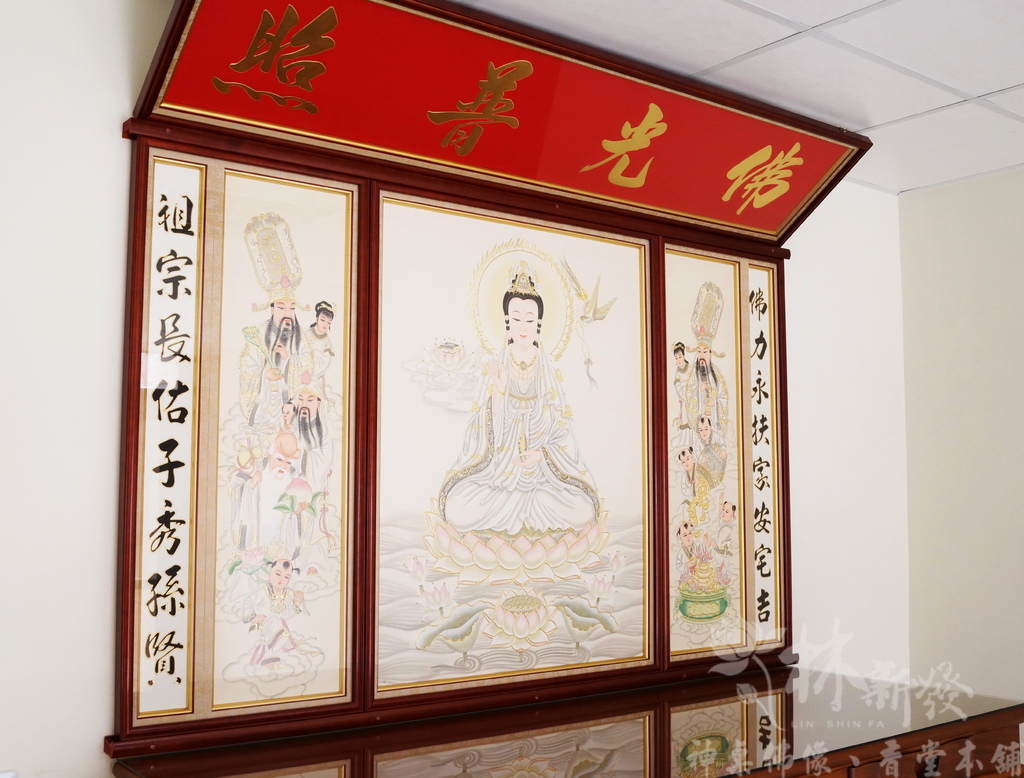 佛光普照
佛力永扶家安宅吉
祖宗長佑子秀孫賢
林新發
LIN SHIN FA
神桌佛像、音堂本舖